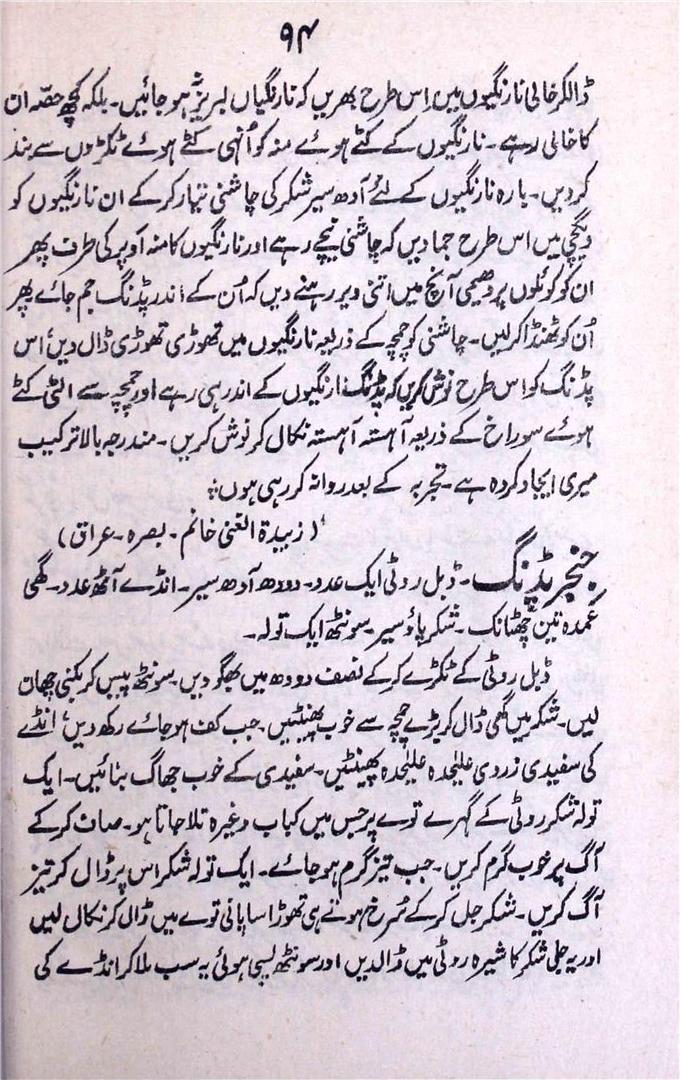 ۹۴
ڈالکر خالی نارنگیوں میں اس طرح بھریں کہ نارنگیاں لبریز نہ ہو جائیں۔ بلکہ کچھ حصّہ ان
کا خالی رہے۔ نارنگیوں کے کٹے ہوئے منہ کو اُنہی کٹے ہوئے ٹکڑوں سے بند
کر دیں۔ بارہ نارنگیوں کے لئے آدھ سیر شکر کی چاشنی تیار کر کے ان نارنگیوں کو
دیگچی میں اس طرح جما دیں کہ چاشنی نیچے رہے اور نارنگیوں کا منہ اوپر کی طرف پھر
ان کو کوئلوں پر دھیمی آنچ میں اتنی دیر رہنے دیں کہ اُن کے اندر پڈنگ جم جائے پھر
اُن کو ٹھنڈا کر لیں۔ چاشنی کو چمچہ کے ذریعہ نارنگیوں میں تھوڑی تھوڑی ڈال دیں، اس
پڈنگ کو اس طرح نوش کریں کہ پڈنگ نارنگیوں کے اندر ہی رہے اور چمچہ سے الٹی کٹے
ہوئے سوراخ کے ذریعہ آہستہ آہستہ نکال کر نوش کریں۔ مندرجہ بالا ترکیب
میری ایجاد کردہ ہے۔ تجربہ کے بعد روانہ کر رہی ہوں؛
(زبیدۃ الغنی خانم۔ بصرہ۔ عراق)
جنجر پڈنگ۔ ڈبل روٹی ایک عدد۔ دودھ آدھ سیر۔ انڈے آٹھ عدد۔ گھی
عمدہ تین چھٹانک۔ شکر پاؤ سیر۔ سونٹھ ایک تولہ۔
ڈبل روٹی کے ٹکڑے کر کے نصف دودھ میں بھگو دیں۔ سونٹھ پیس کر کپڑ چھان
لیں۔ شکر میں گھی ڈال کر بڑے چمچہ سے خوب پھینٹیں۔ جب کف ہو جائے رکھ دیں، انڈے
کی سفیدی زردی علیٰحدہ علیٰحدہ پھینٹیں۔ سفیدی کے خوب جھاگ بنائیں۔ ایک
تولہ شکر روٹی کے گہرے توے پر جس میں کباب وغیرہ تلا جاتا ہو۔ صاف کر کے
آگ پر خوب گرم کریں۔ جب تیز گرم ہو جائے۔ ایک تولہ شکر اس پر ڈال کر تیز
آگ کریں۔ شکر جل کر کے سُرخ ہونے ہی تھوڑا سا پانی توے میں ڈال کر نکال لیں
اور یہ جلی شکر کا شیرہ روٹی میں ڈالدیں اور سونٹھ پسی ہوئی یہ سب ملا کر انڈے کی